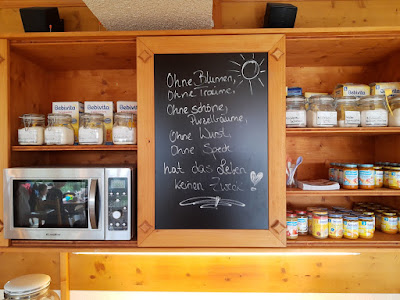 Bebivita
Bebivita
Bebivita
Ohne Blumen,
Ohne Träume,
Ohne schöne,
Purzelbäume,
Ohne Wurst,
Ohne Speck
hat das Leben
keinen Zweck!